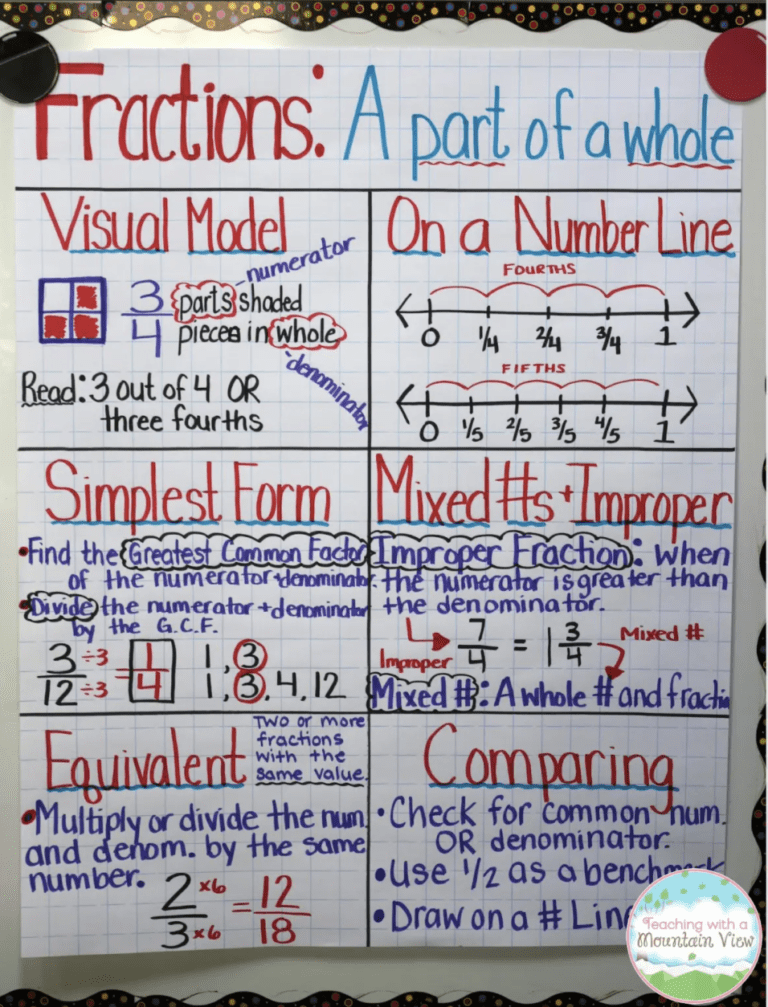 Fractions: A part of a whole
Visual Model
numerator
3 parts shaded
4 pieces in whole
denominator
Read: 3 out of 4 OR
three fourths
On a Number Line
FOURTHS
0 1/4 2/4 3/4 1
FIFTHS
0 1/5 2/5 3/5 4/5 1
Simplest Form
•Find the Greatest Common Factor
of the numerator + denominator.
•Divide the numerator + denominator
by the G.C.F.
3 ÷3 = 1 1, 3
12 ÷3 4 1, 3, 4, 12
Mixed #s + Improper
Improper Fraction: when
the numerator is greater than
the denominator.
7/4 = 1 3/4 Mixed #
Improper
Mixed #: A whole # and
Equivalent
Two or more
fractions
with the
same value.
•Multiply or divide the num.
and denom. by the same
number.
2 x6 = 12
3 x6 18
Comparing
•Check for common num.
OR denominator.
•Use 1/2 as a
•Draw on a #
Teaching with a
Mountain View